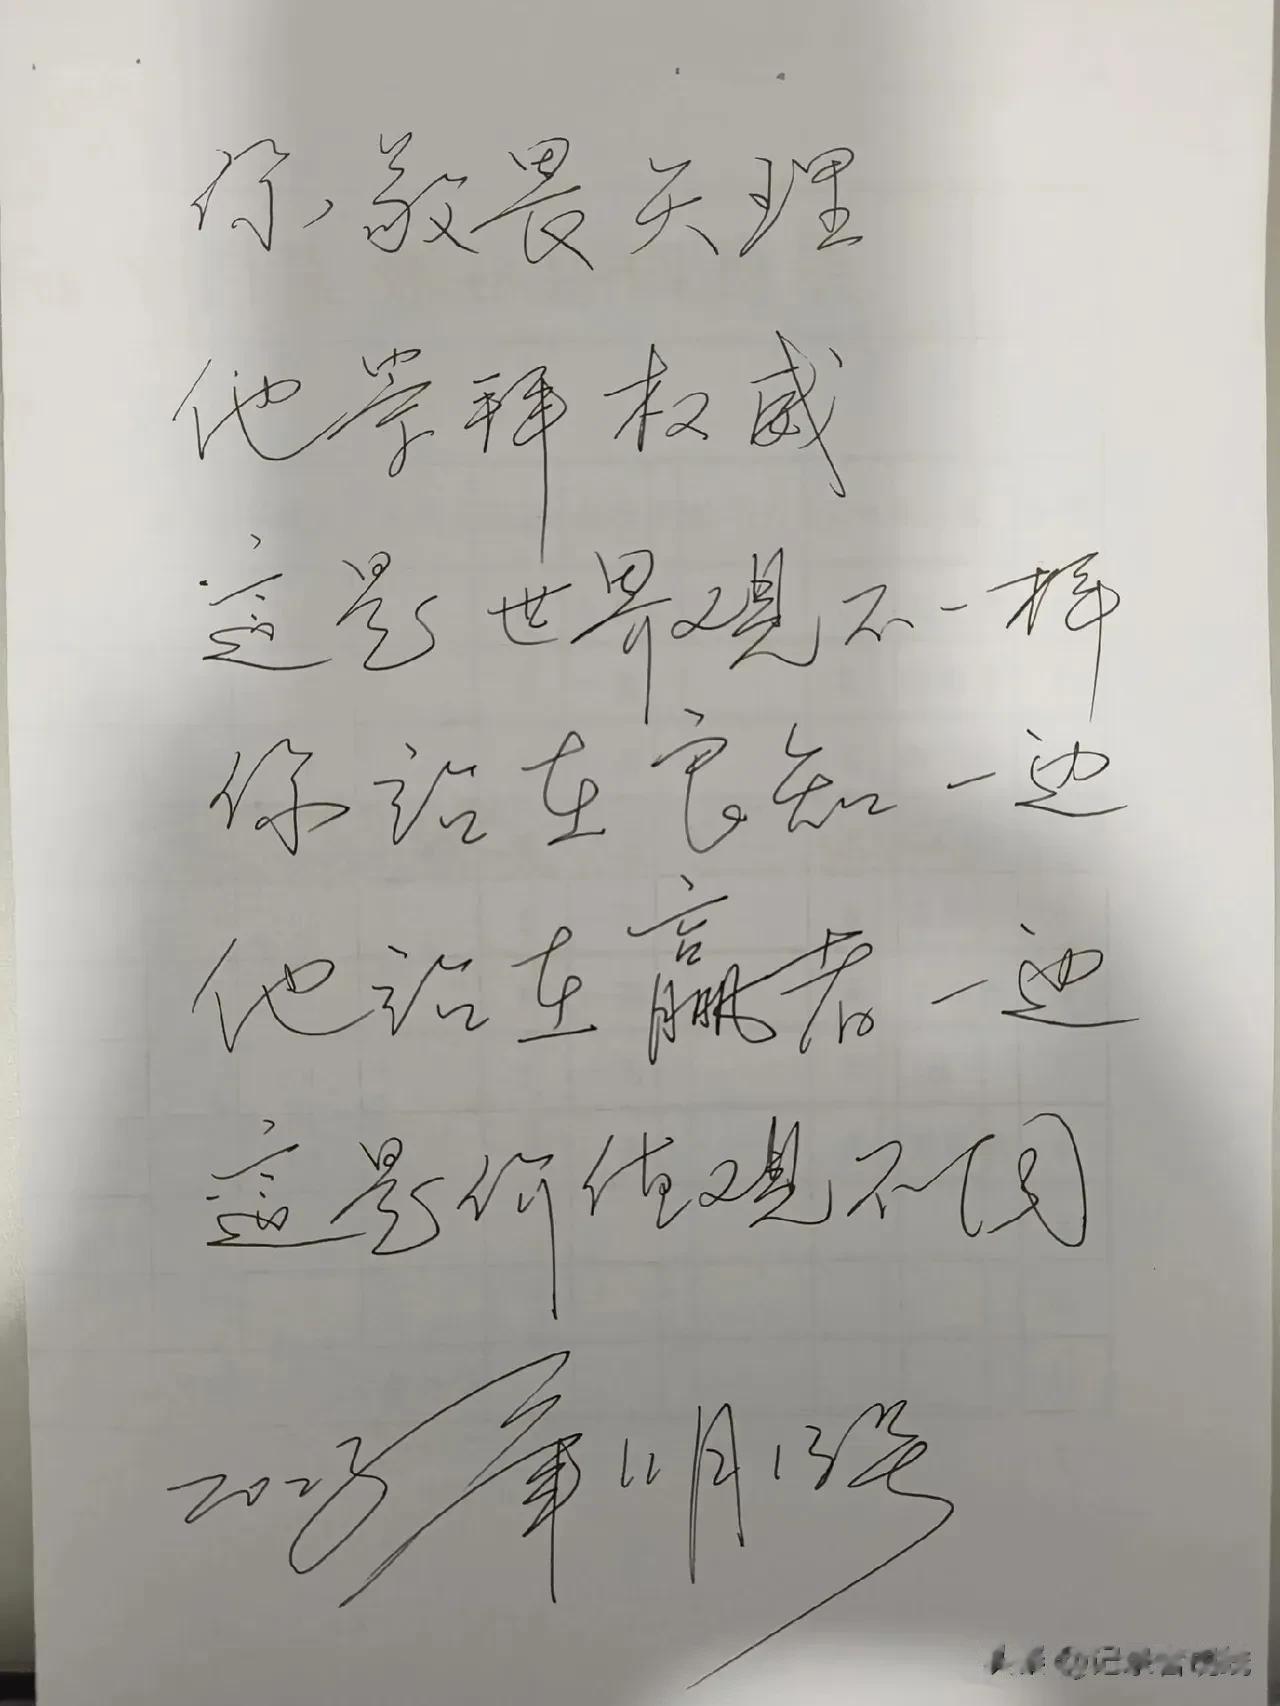 你、敬畏天理
他崇拜权威
这是世界观不一样
你站在良知一边
他站在赢者一边
这是价值观不同
2025年11月13号